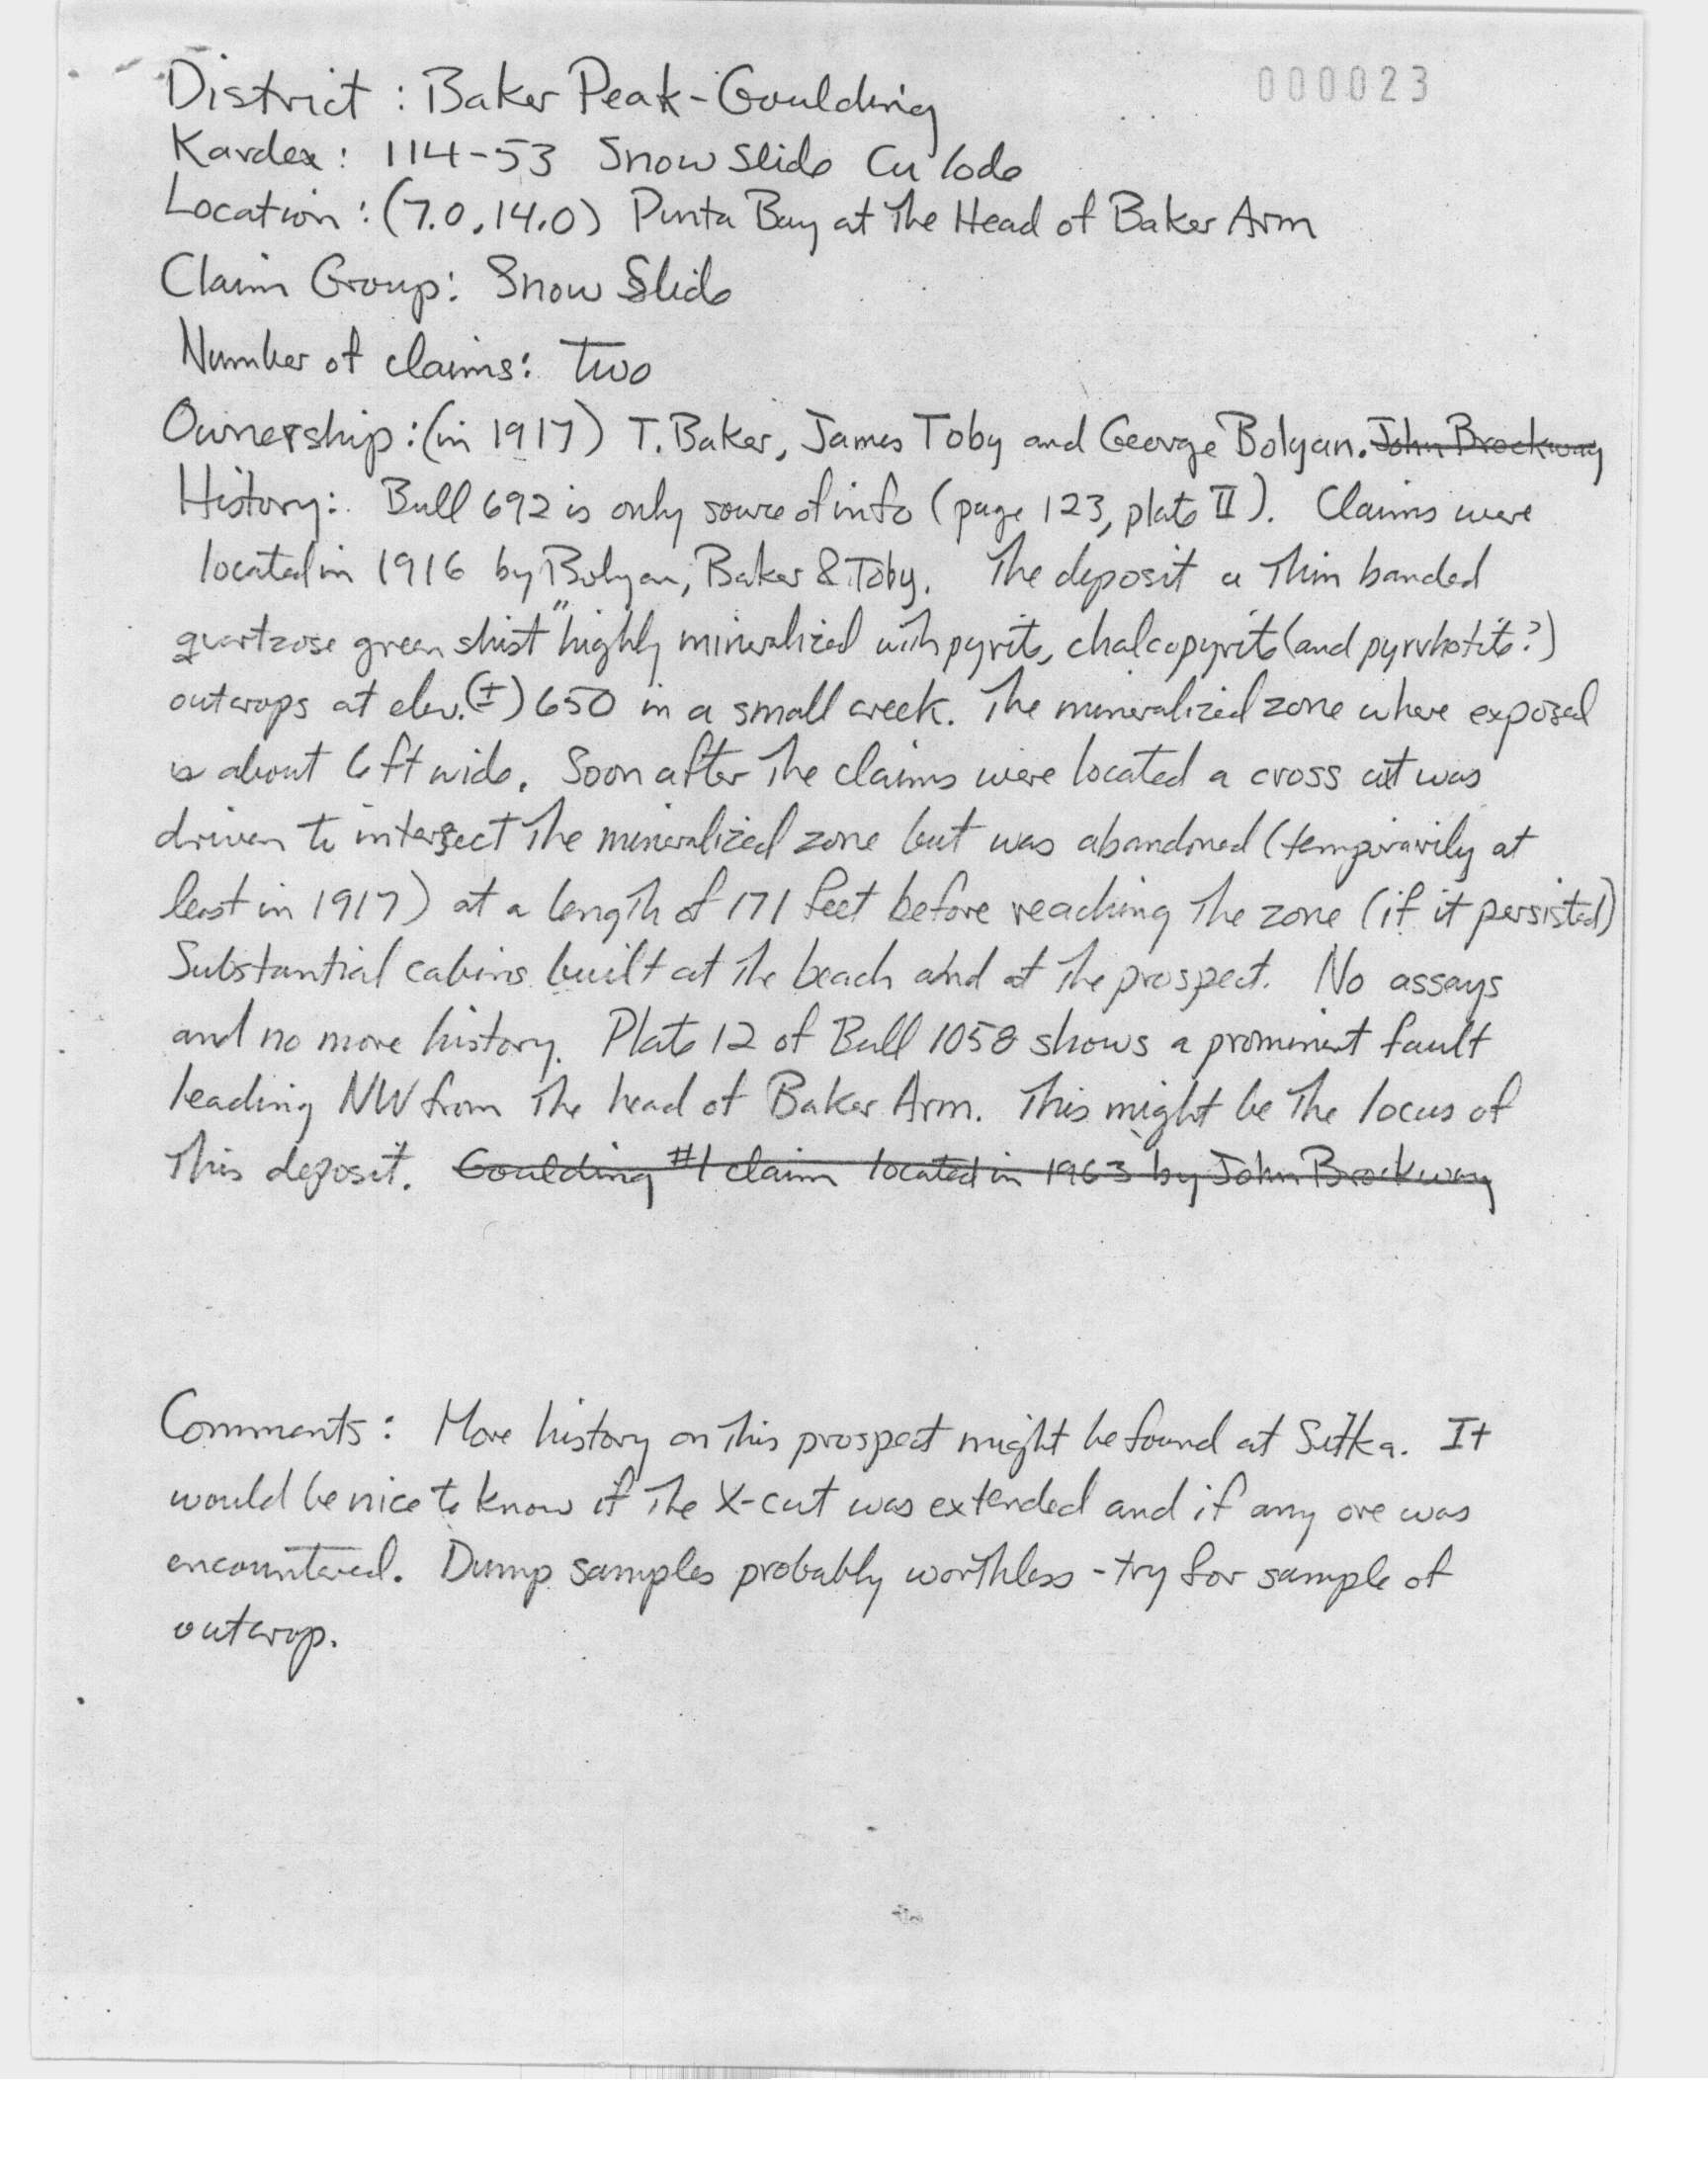 000023
District : Baker Peak-Goulding
Kardex: 114-53 Snow Slide Cu lode
Location : (7.0, 14.0) Pinta Bay at The Head of Baker Arm
Claim Group: Snow Slide
Number of claims: Two
Ownership: (in 1917) T. Baker, James Toby and George Bolyan. John Brockway
History: Bull 692 is only source of info (page 123, plate II). Claims were
located in 1916 by Bolyan, Baker & Toby. The deposit a Thin banded
quartzose green shist" highly mineralized with pyrite, chalcopyrite (and pyrrhotite?)
outcrops at elev. (±) 650 in a small creek. The mineralized zone where exposed
is about 6 ft wide. Soon after The claims were located a cross cut was
driven to intersect The mineralized zone but was abandoned (temporarily at
least in 1917) at a length of 171 feet before reaching The zone (if it persisted)
Substantial cabins built at The beach and at The prospect. No assays
and no more history. Plate 12 of Bull 1058 shows a prominent fault
leading NW from The head of Baker Arm. This might be The locus of
This deposit. Goulding #1 claim located in 1963 by John Brockway
Comments: More history on This prospect might be found at Sitka. It
would be nice to know if The X-cut was extended and if any ore was
encountered. Dump samples probably worthless - try for sample of
outcrop.